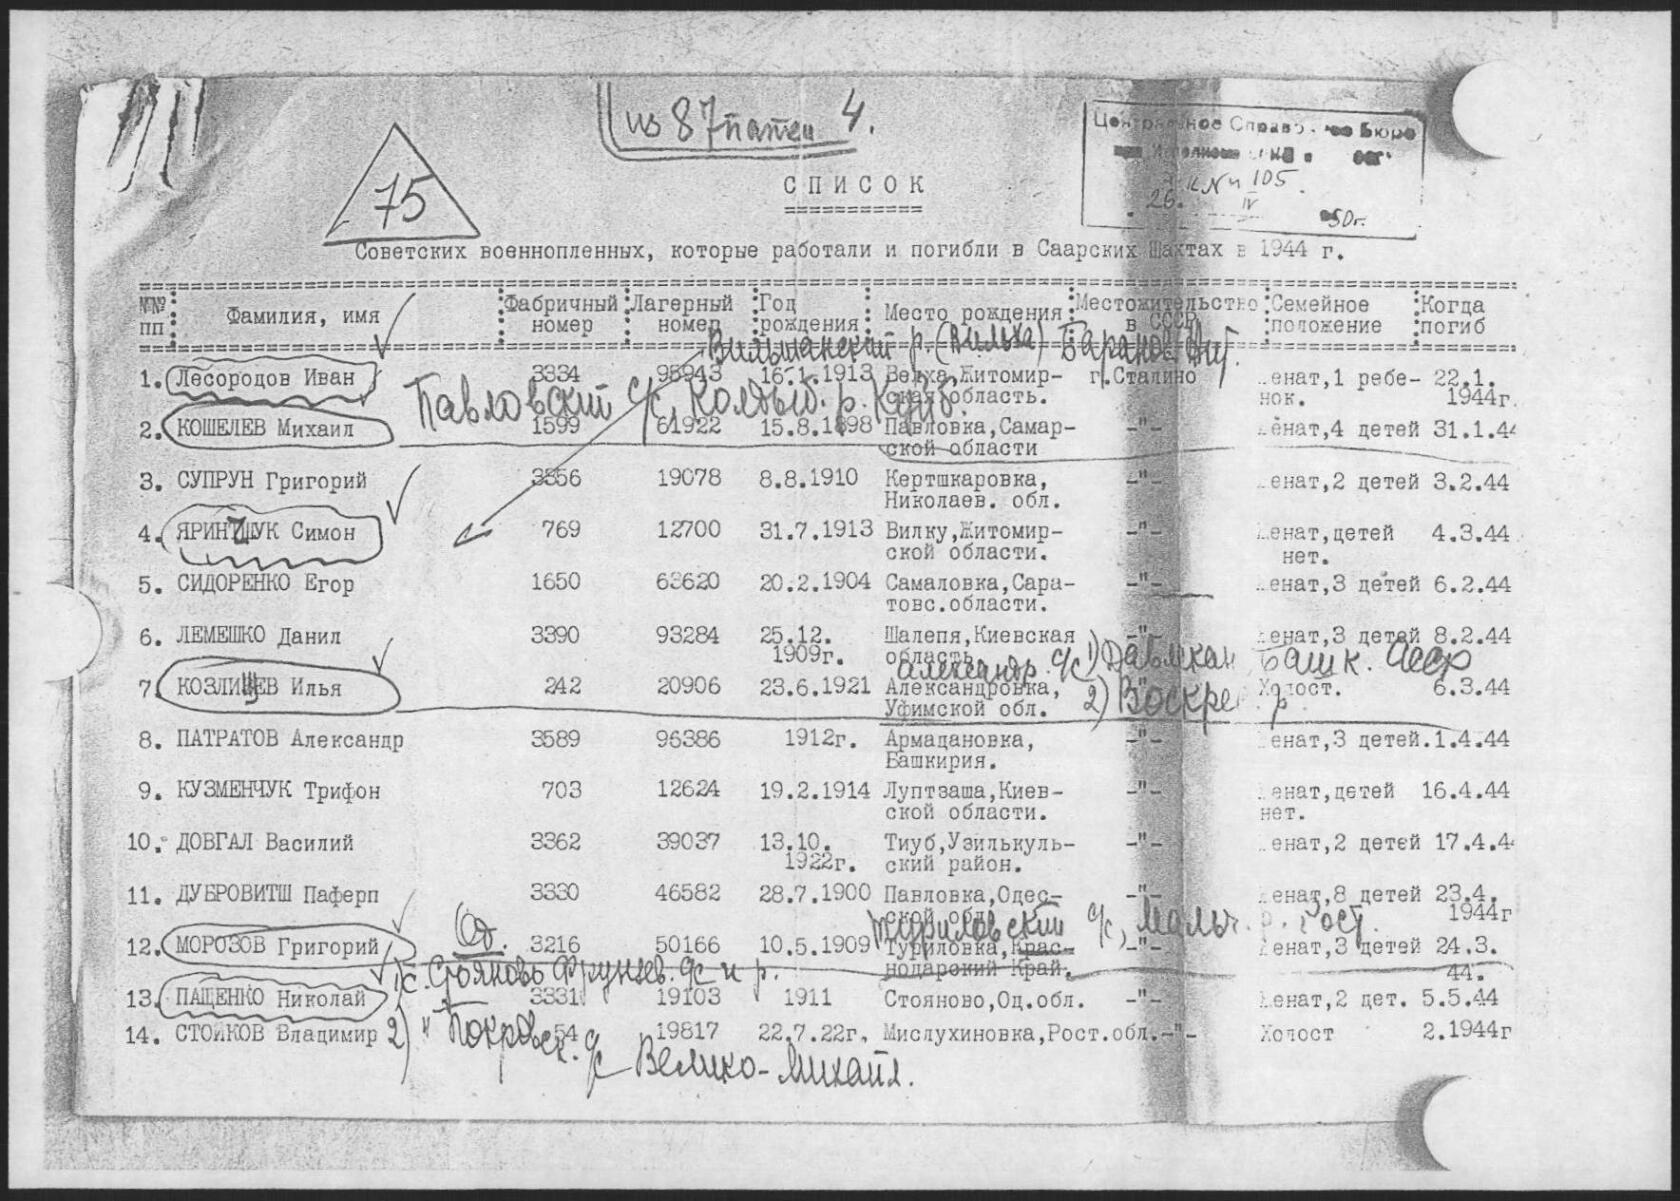 из 87 4.
75
СПИСОК
Справо Бюро
105
26. IV 50г.
Советских военнопленных, которые работали и погибли в Саарских Шахтах в 1944 г.
№№ пп Фамилия, имя Фабричный номер Лагерный номер Год рождения Место рождения Местожительство в СССР Семейное положение Когда погиб
Вильшанский р.
1. Лесородов Иван 3334 95943 16.1.1913 Велха,Житомир- г.Сталино енат,1 ребе- 22.1.
ская область. нок. 1944г.
Павловский с/с,
2. КОШЕЛЕВ Михаил 1599 61922 15.8.1898 Павловка,Самар- -"- енат,4 детей 31.1.44
ской области
3. СУПРУН Григорий 3556 19078 8.8.1910 Кертшкаровка, -"- енат,2 детей 3.2.44
Николаев. обл.
4. ЯРИНЧУК Симон 769 12700 31.7.1913 Вилку,Житомир- -"- енат,детей 4.3.44
ской области. нет.
5. СИДОРЕНКО Егор 1650 63620 20.2.1904 Самаловка,Сара- -"- енат,3 детей 6.2.44
товс.области.
6. ЛЕМЕШКО Данил 3390 93284 25.12. Шалепя,Киевская -"- енат,3 детей 8.2.44
1909г. область
Александр. с/с 1) Башк. АССР
7. КОЗЛИЩЕВ Илья 242 20906 23.6.1921 Александровка, 2) Воскре р. Холост. 6.3.44
Уфимской обл.
8. ПАТРАТОВ Александр 3589 96386 1912г. Армадановка, -"- енат,3 детей.1.4.44
Башкирия.
9. КУЗМЕНЧУК Трифон 703 12624 19.2.1914 Луптзаша,Киев- -"- енат,детей 16.4.44
ской области. нет.
10. ДОВГАЛ Василий 3362 39037 13.10. Тиуб,Узилькуль- -"- енат,2 детей 17.4.4
1922г. ский район.
11. ДУБРОВИТШ Паферп 3330 46582 28.7.1900 Павловка,Одес- -"- енат,8 детей 23.4.
ской обл. 1944г
Туриловский с/с, Мальч. р. Рост.
12. МОРОЗОВ Григорий Од. 3216 50166 10.5.1909 Туриловка,Крас- -"- енат,3 детей 24.3.
нодарский Край. 44.
1) с. Стояново Фрунзев. с/с и р.
13. ПАЩЕНКО Николай 3331 19103 1911 Стояново,Од.обл. -"- енат,2 дет. 5.5.44
14. СТОЙКОВ Владимир 54 19817 22.7.22г. Мислухиновка,Рост.обл.-"- Холост 2.1944г
2) " Покровск. с/с Велико-Михайл.